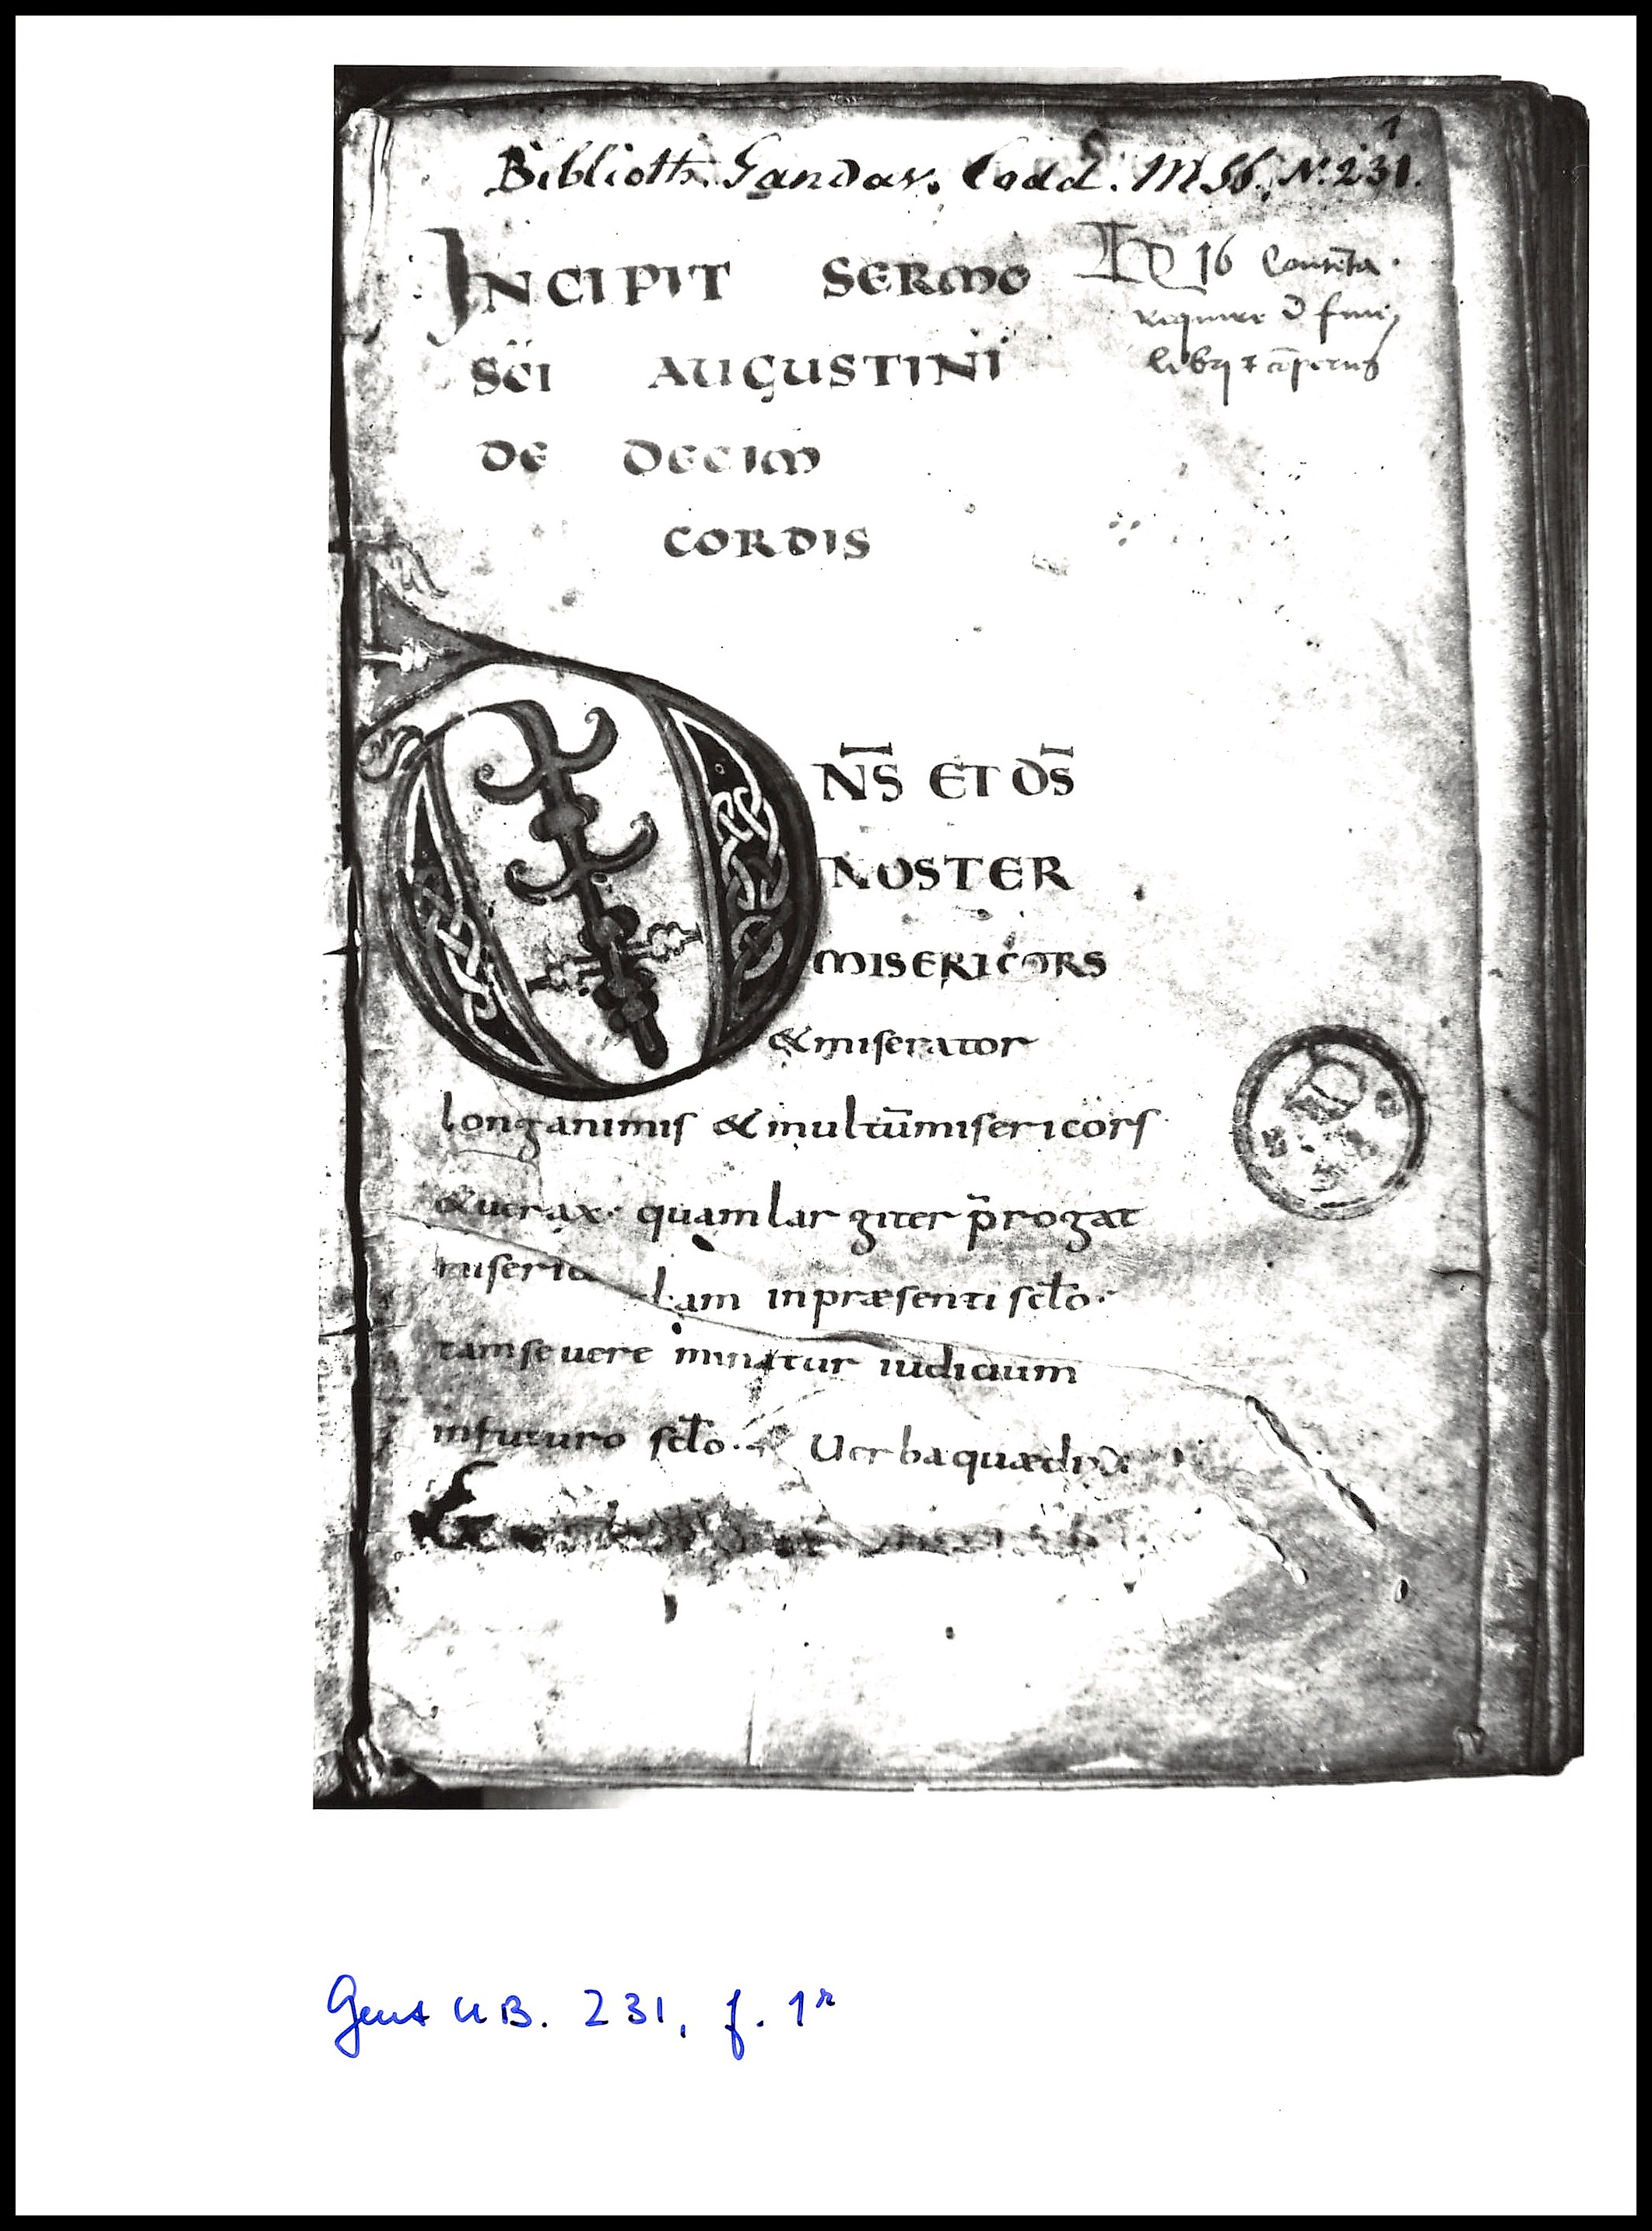 1
Biblioth. Gandav. Codd. MSS. N. 231.
INCIPIT SERMO
SCI AUGUSTINI
DE DECIM
CORDIS
16 Contēta
require
libri
DN̄S ET DS̄
NOSTER
MISERICORS
& miserator
longanimis & multū misericors
& uerax. quam largiter p̄rogat
miseric am in præsenti sclo.
tam seuere minatur iudicium
in futuro sclo. Uerba quæ dix
Gent UB. 231, f. 1r